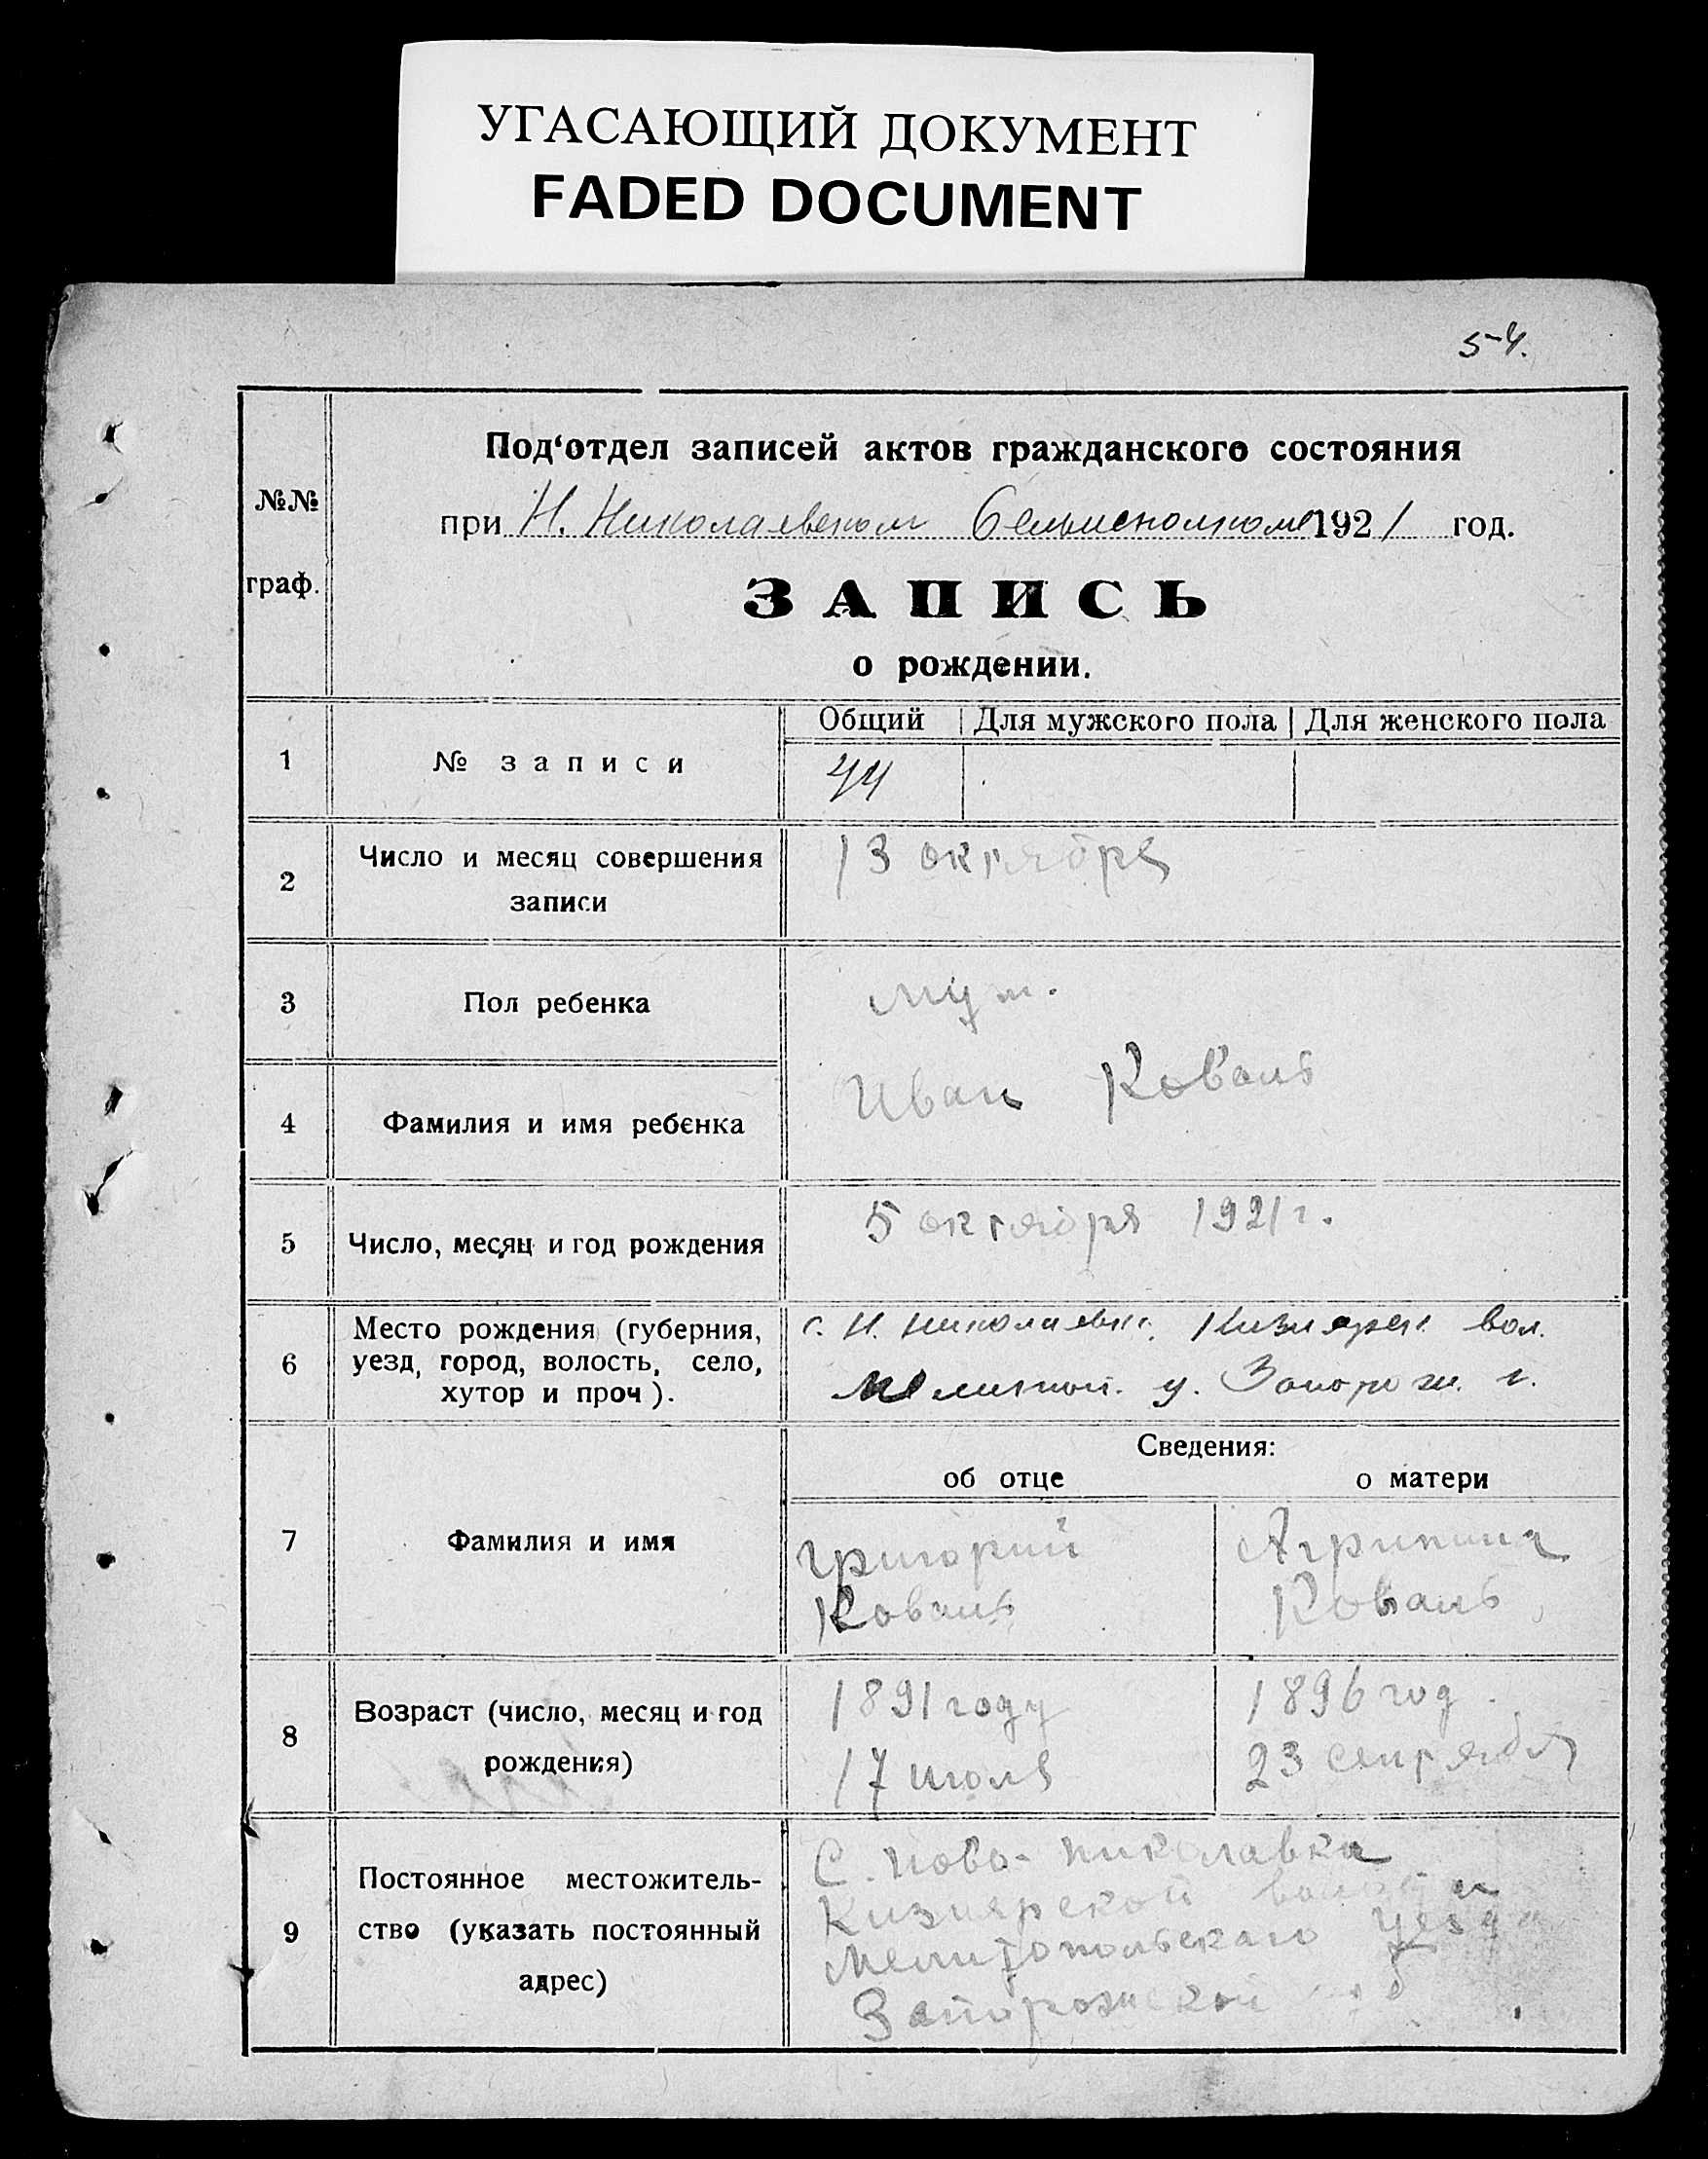 УГАСАЮЩИЙ ДОКУМЕНТ
FADED DOCUMENT
54.
№№
граф.
Под‘отдел записей актов гражданского состояния
при Н. Николаевском Сельисполкоме 1921 год.
ЗАПИСЬ
о рождении.
Общий Для мужского пола Для женского пола
1 № записи 44
2 Число и месяц совершения записи 13 октября
3 Пол ребенка муж.
4 Фамилия и имя ребенка Иван Коваль
5 Число, месяц и год рождения 5 октября 1921 г.
6 Место рождения (губерния, с. Н. Николаевк. Кизиярск. вол.
уезд, город, волость, село,
хутор и проч). Мелитоп. у. Запорож. г.
Сведения:
об отце о матери
7 Фамилия и имя
Григорий Агрипина
Коваль Коваль
8 Возраст (число, месяц и год
рождения)
1891 году 1896 год.
17 июля 23 сентября
9 Постоянное местожитель-
ство (указать постоянный
адрес)
С. Ново-Николавка
Кизиярской
Мелитопольскаго уезда
Запорожской губ